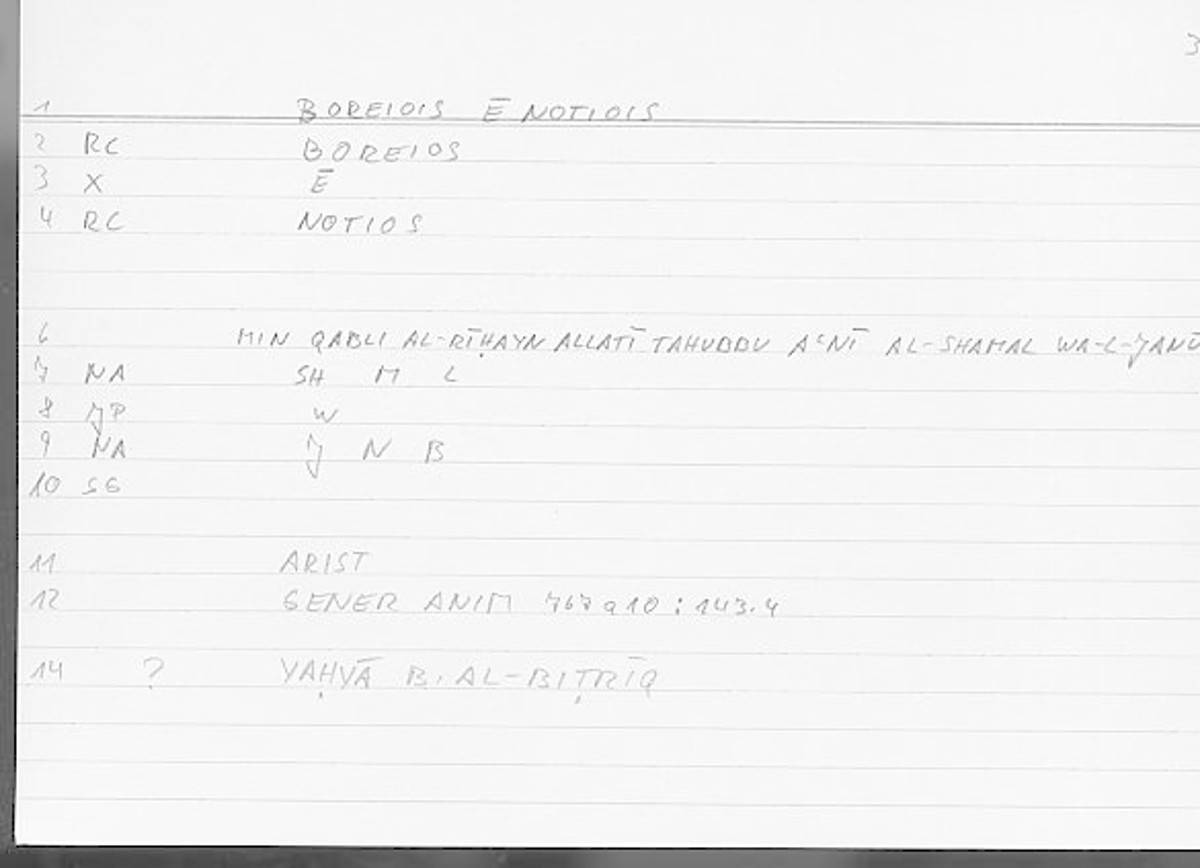 3
1 BOREIOIS Ē NOTIOIS
2 RC BOREIOS
3 X Ē
4 RC NOTIOS
6 MIN QABLI AL-RĪḤAYN ALLATĪ TAHUBBU AʿNĪ AL-SHAMAL WA-L-JANŪ
7 NA SH M L
8 JP W
9 NA J N B
10 SG
11 ARIST
12 GENER ANIM 767a10:143.4
14 ? YAḤYĀ B. AL-BIṬRĪQ